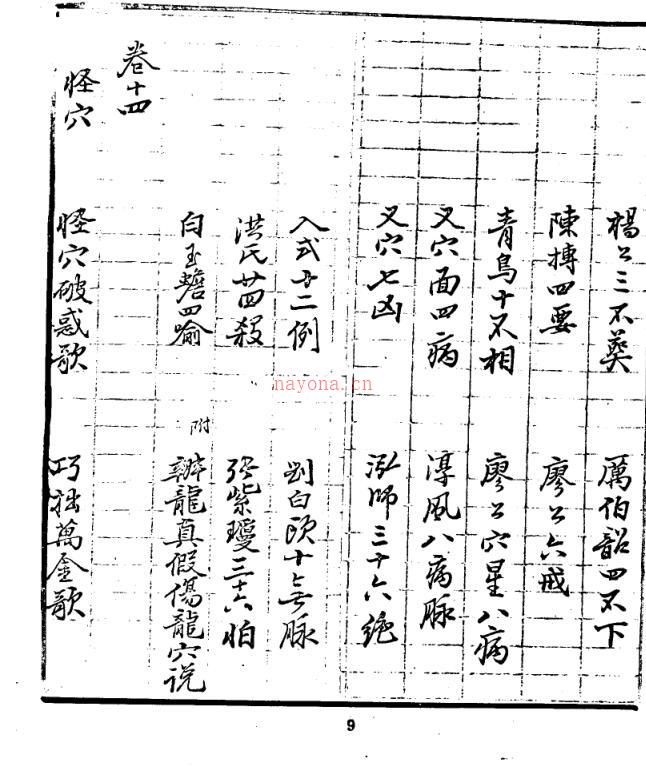 楊公三不葬 厲伯韶四不下
陳摶四要 廖公六戒
青烏十不相 廖公穴星八病
又穴面四病 淳風八病脈
又穴七凶 泓師三十六絕
入式廿二例 劉白頭十七脈
洪氏廿四殺 張紫瓊三十六怕
白玉蟾四喻 附 辨龍真假傷龍穴说
卷十四
怪穴 怪穴破惑歌 巧拙萬金歌
nayona.cn
9